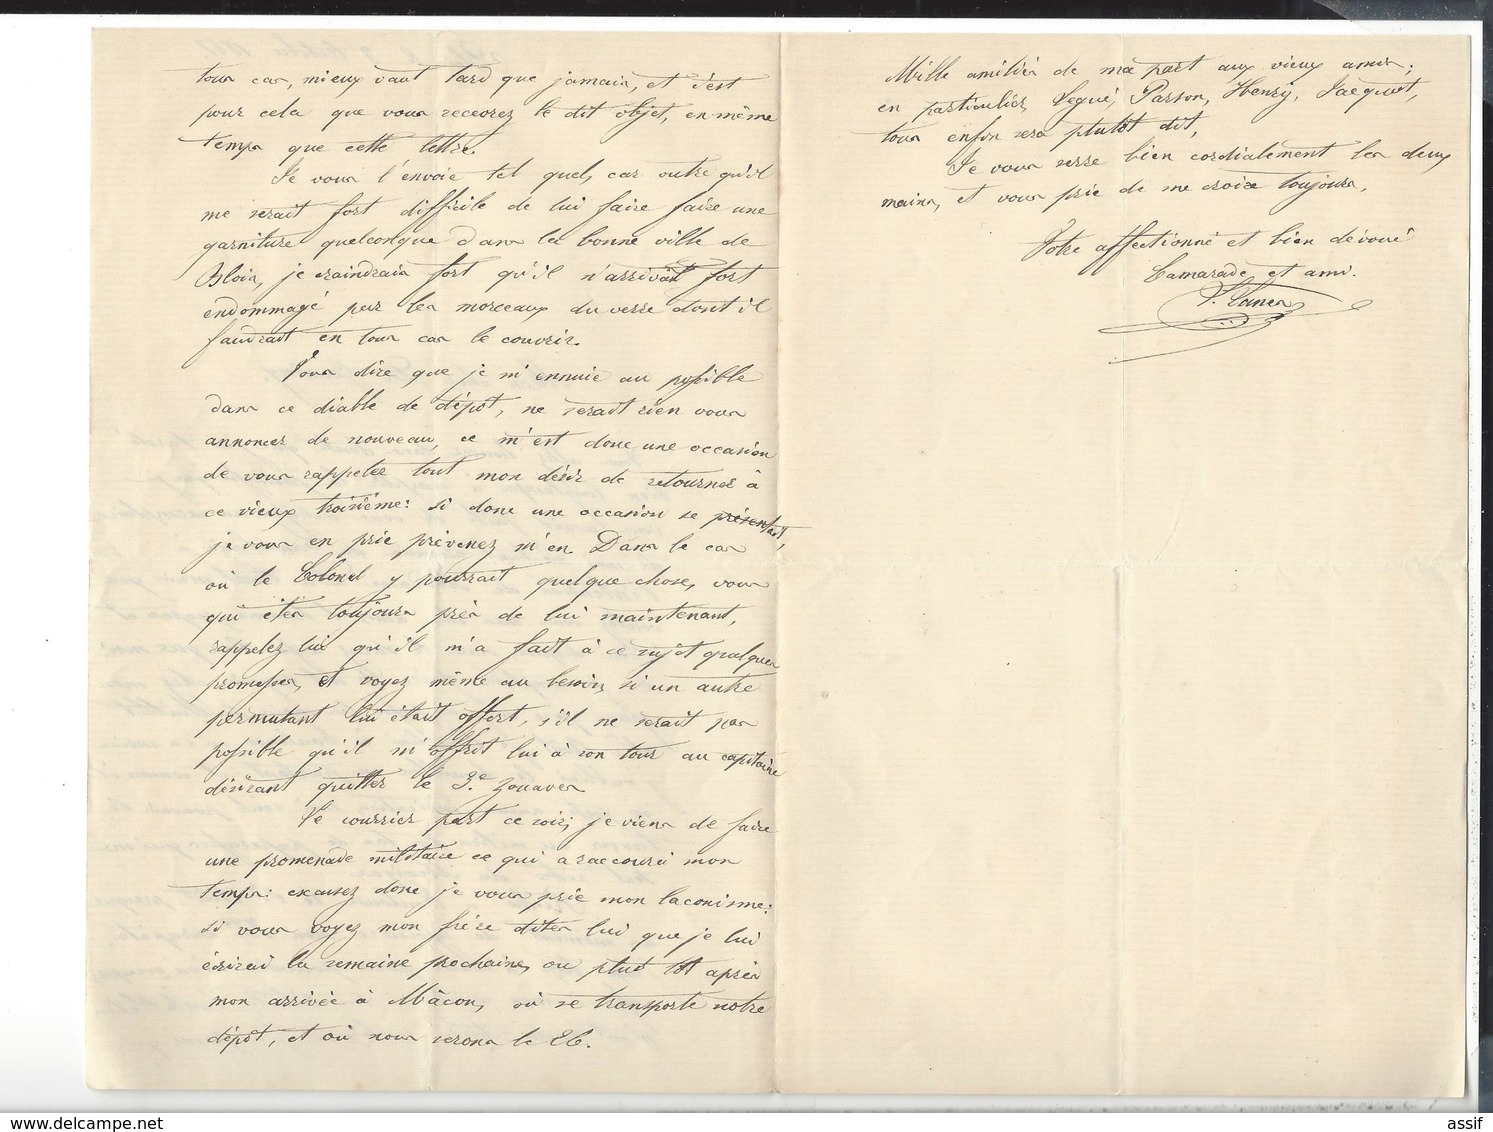 tous cas, mieux vaut tard que jamais, et c'est
pour cela que vous recevrez le dit objet, en même
temps que cette lettre.
Je vous l'envoie tel quel, car outre qu'il
me serait fort difficile de lui faire faire une
garniture quelconque dans la bonne ville de
Blois, je craindrais fort qu'il n'arrivât fort
endommagé par les morceaux du verre dont il
faudrait en tous cas le couvrir.
Vous dire que je m'ennuie au possible
dans ce diable de dépôt, ne serait rien vous
annoncer de nouveau, ce m'est donc une occasion
de vous rappeler tout mon désir de retourner à
ce vieux troisième: si donc une occasion se présentait,
je vous en prie prévenez m'en. Dans le cas
où le Colonel y pourrait quelque chose, vous
qui êtes toujours près de lui maintenant,
rappelez lui qu'il m'a fait à ce sujet quelques
promesses, et voyez même au besoin, si un autre
permutant lui était offert, s'il ne serait pas
possible qu'il m'offrit lui à son tour au capitaine
désirant quitter le 3e Zouaves
Le courrier part ce soir; je viens de faire
une promenade militaire ce qui a raccourci mon
temps: excusez donc je vous prie mon laconisme:
si vous voyez mon frère dites lui que je lui
écrirai la semaine prochaine, ou plus tôt après
mon arrivée à Mâcon, où se transporte notre
dépôt, et où nous serons le 26.
Mille amitiés de ma part aux vieux amis;
en particulier, Segué, Parson, Henry, Jacquot,
tous enfin sera plutôt dit,
Je vous serre bien cordialement les deux
mains, et vous prie de me croire toujours,
Votre affectionné et bien dévoué
Camarade et ami.
assif